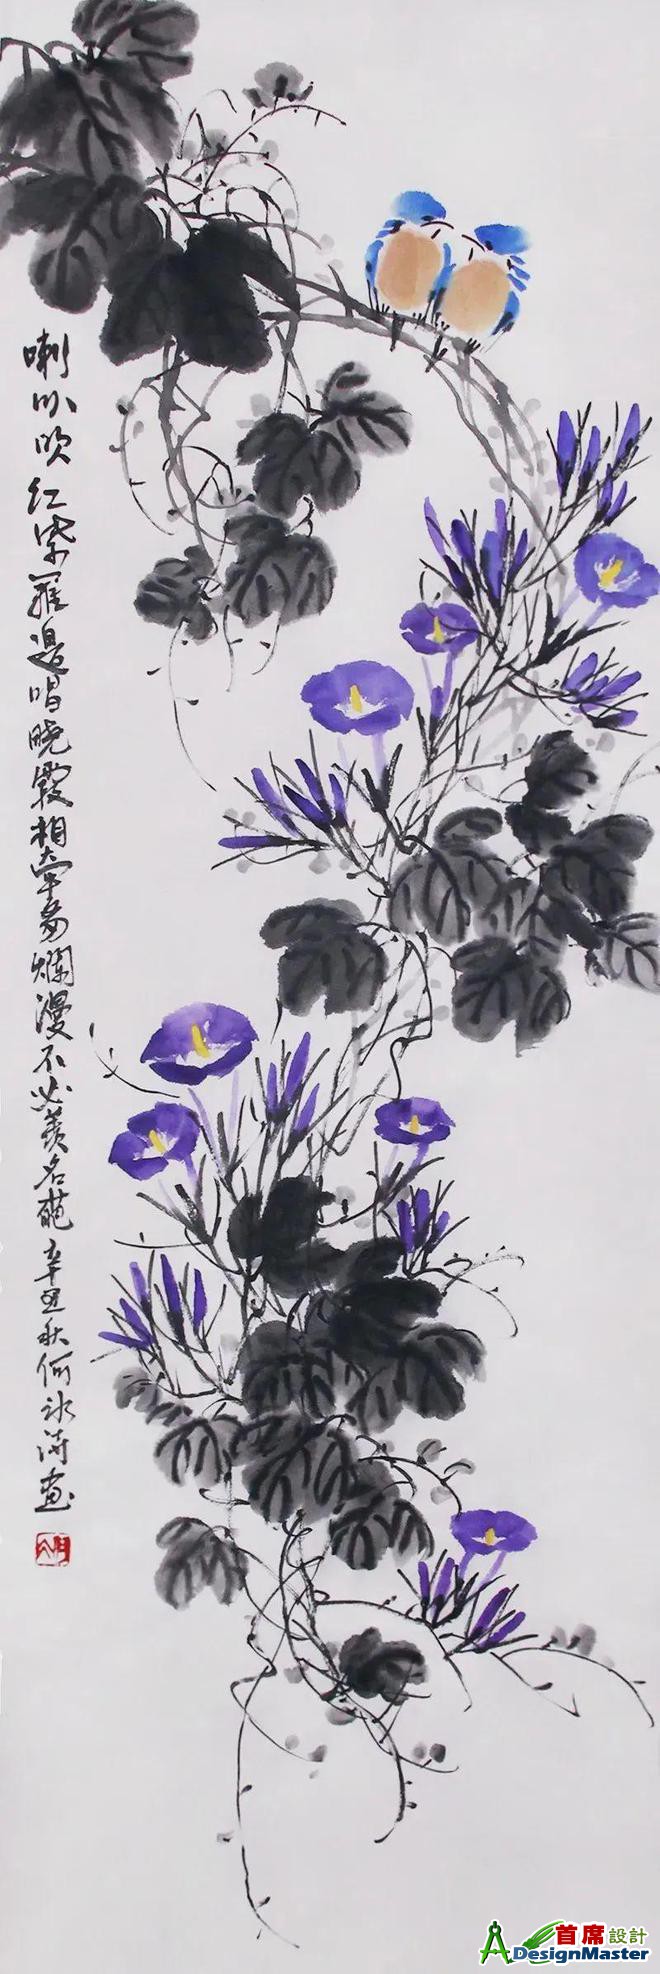 喇叭吹红紫罗邊唱晓霞相牵易爛漫不必羡名葩辛丑秋何冰涛画
首席設計
DesignMaster